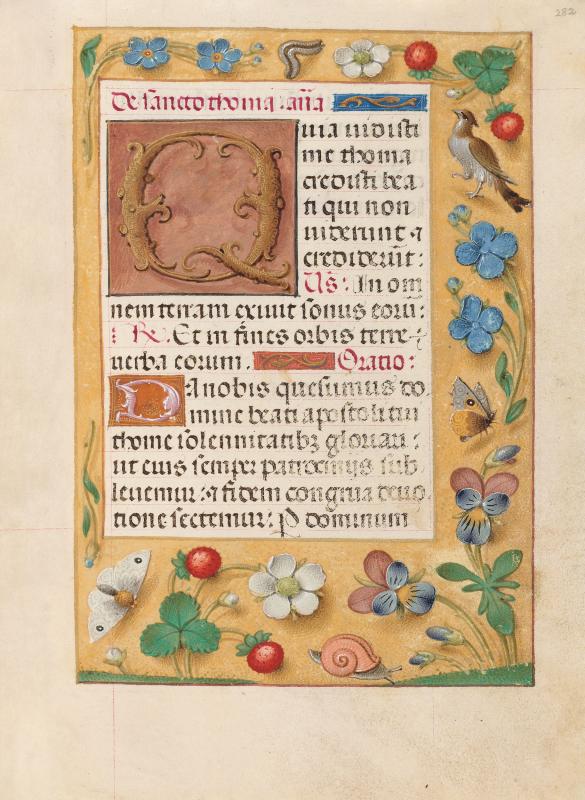 282
De sancto thoma. an̄a
Quia uidisti
me thoma
credisti bea
ti qui non
uiderunt ⁊
crediderūt:
Vs̄: In om
nem terram exiuit sonus eorū:
R⁊. Et in fines orbis terre
uerba eorum. Oratio:
Da nobis quesumus do
mine beati apostoli tui
thome solennitatibꝫ gloriari:
ut eius semper patrocinijs sub
leuemur: ⁊ fidem congrua deuo
tione sectemur: P dominum